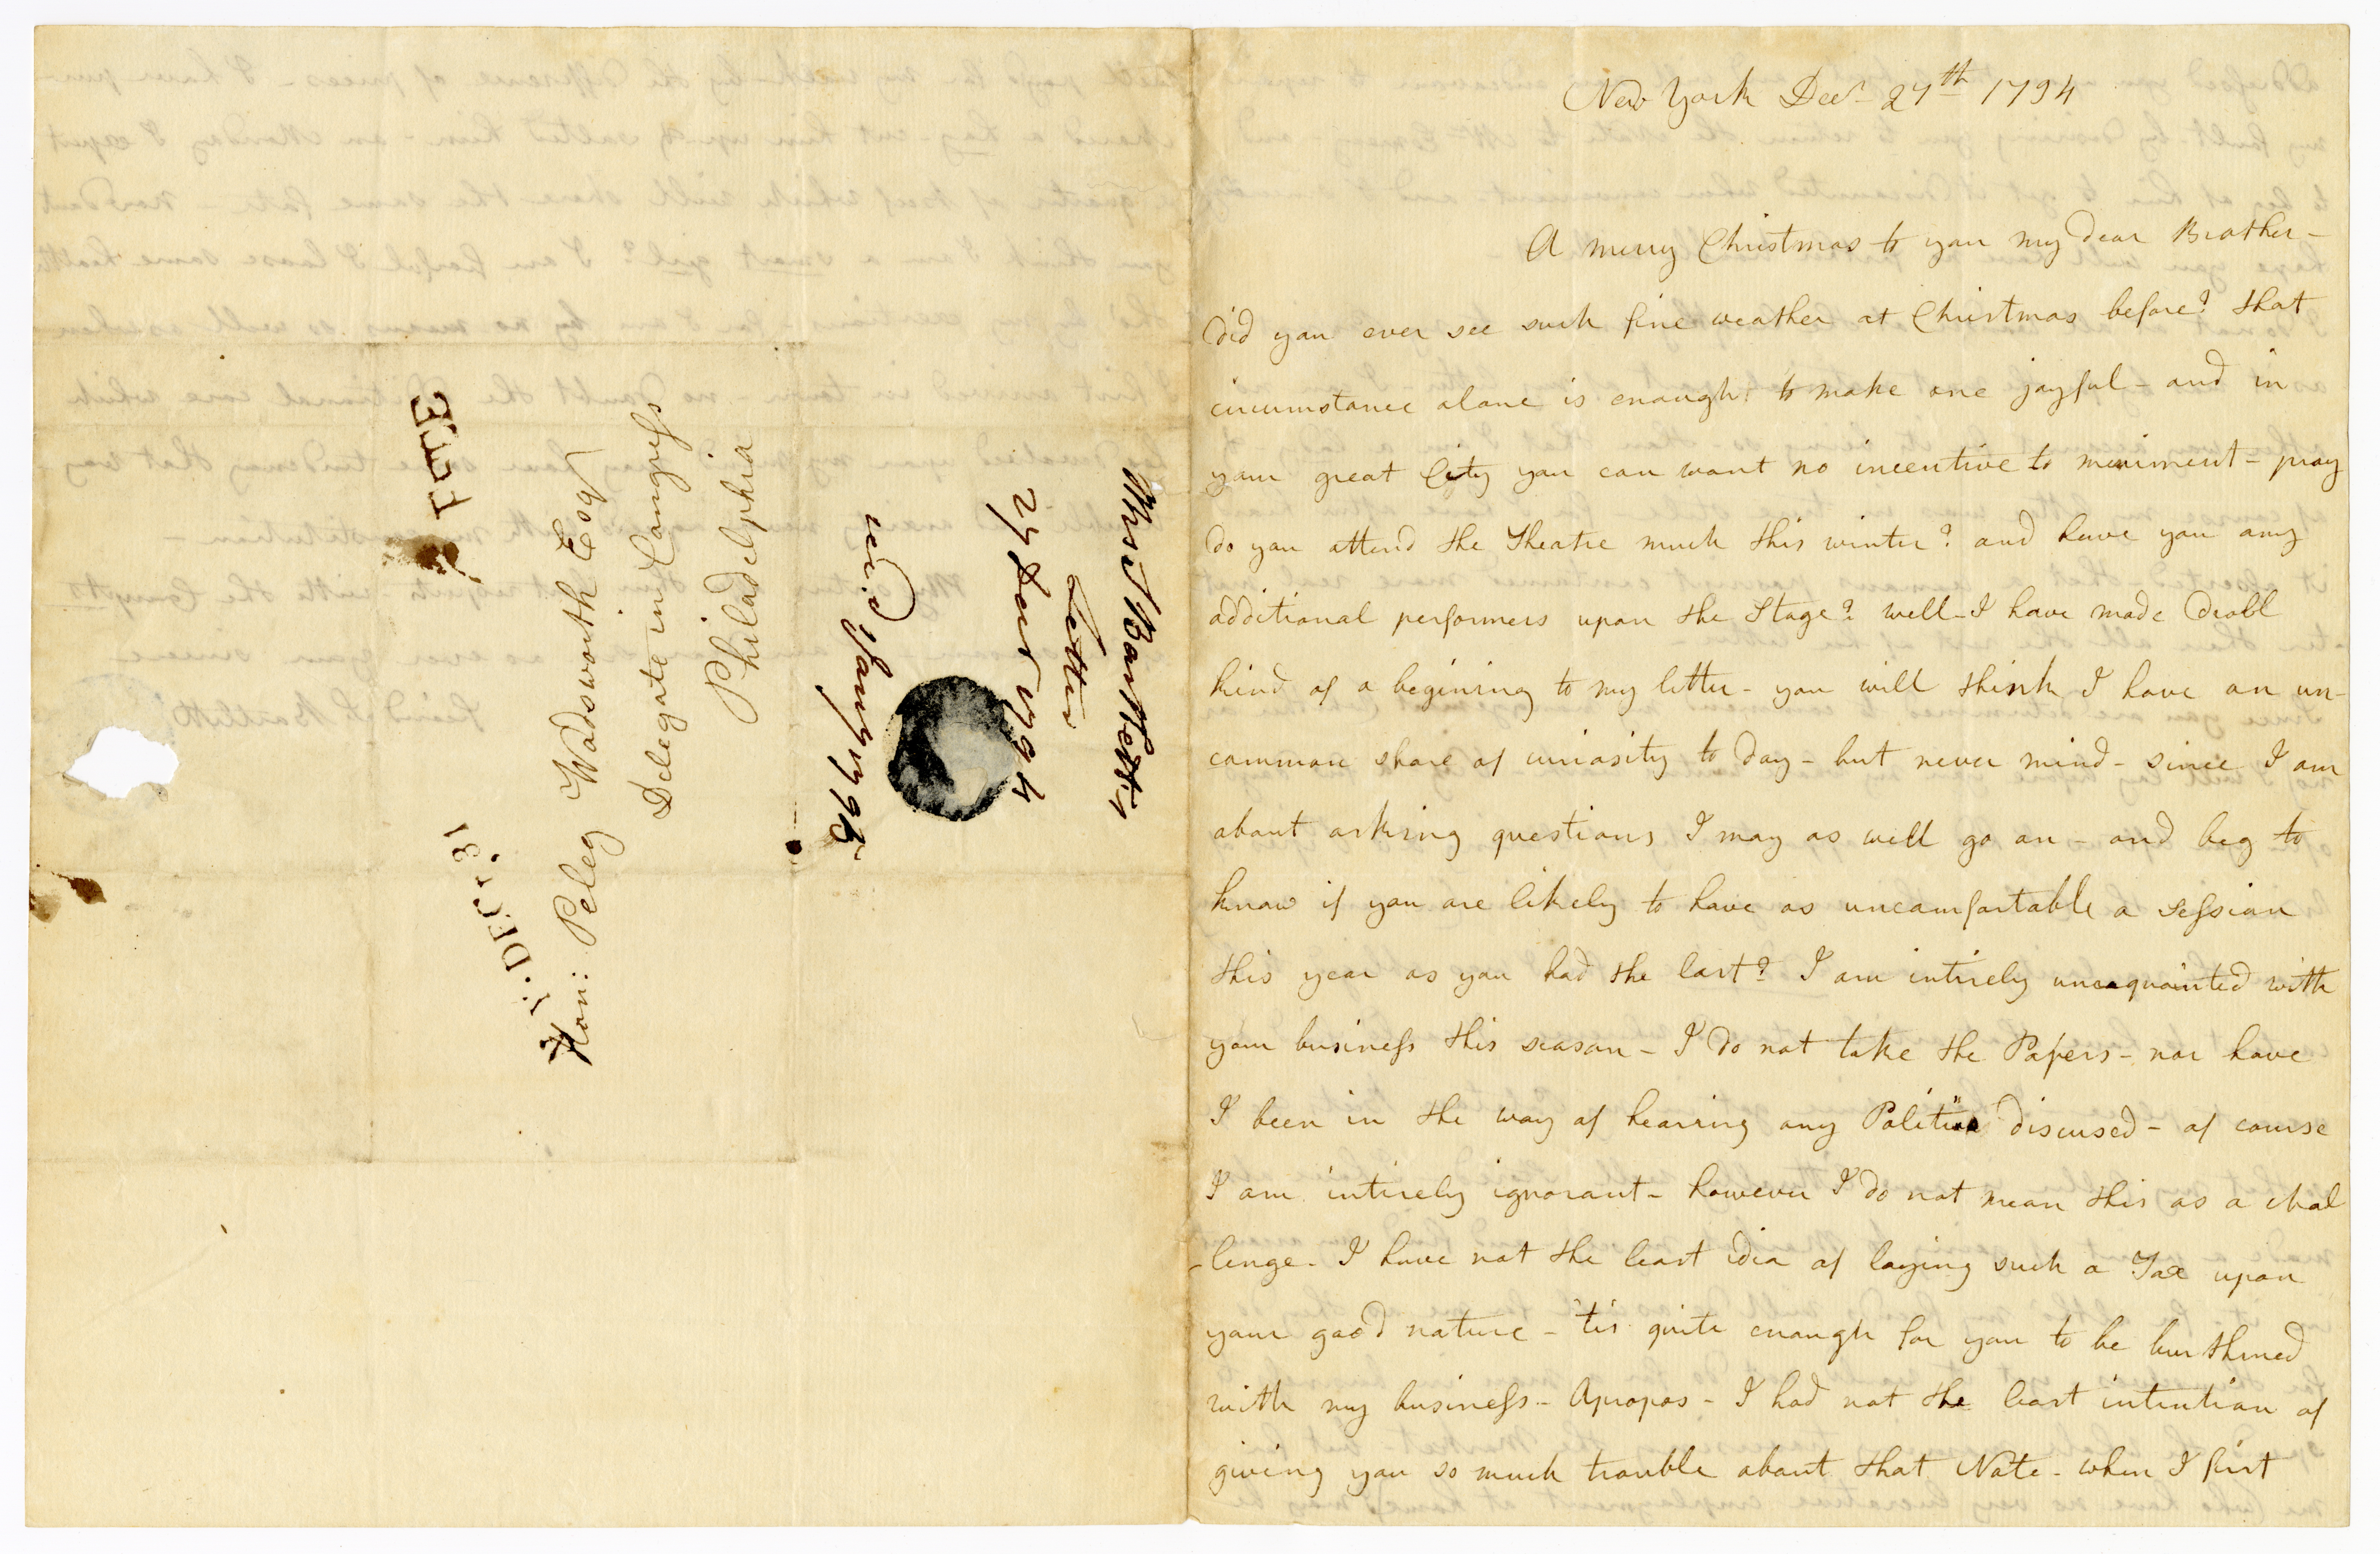 New York Decr 27th 1794
A merry Christmas to you my dear Brother -
did you ever see such fine weather at Christmas before? that
circumstance alone is enough to make one joyful - and in
your great City you can want no incentive to meriment - pray
do you attend the Theatre much this winter? and have you any
additional performers upon the Stage? well - I have made droll
kind of a begining to my letter - you will think I have an un-
common share of curiosity to day - but never mind - since I am
about asking questions I may as well go on - and beg to
know if you are likely to have as uncomfortable a session
this year as you had the last? I am intirely unacquainted with
your business this season - I do not take the Papers - nor have
I been in the way of hearing any Politics discused - of course
I am intirely ignorant - however I do not mean this as a chal
-lenge - I have not the least idea of laying such a Tax upon
your good nature - 'tis quite enough for you to be burthned
with my business - Apropos - I had not the least intention of
giving you so much trouble about that Note - when I first
Hon: Peleg Wadsworth Esqr
Delegate in Congress
Philadelphia
DEC. 31
Mrs S Bartlett's
Letter
27 Decr 1794
recd Jany 1795